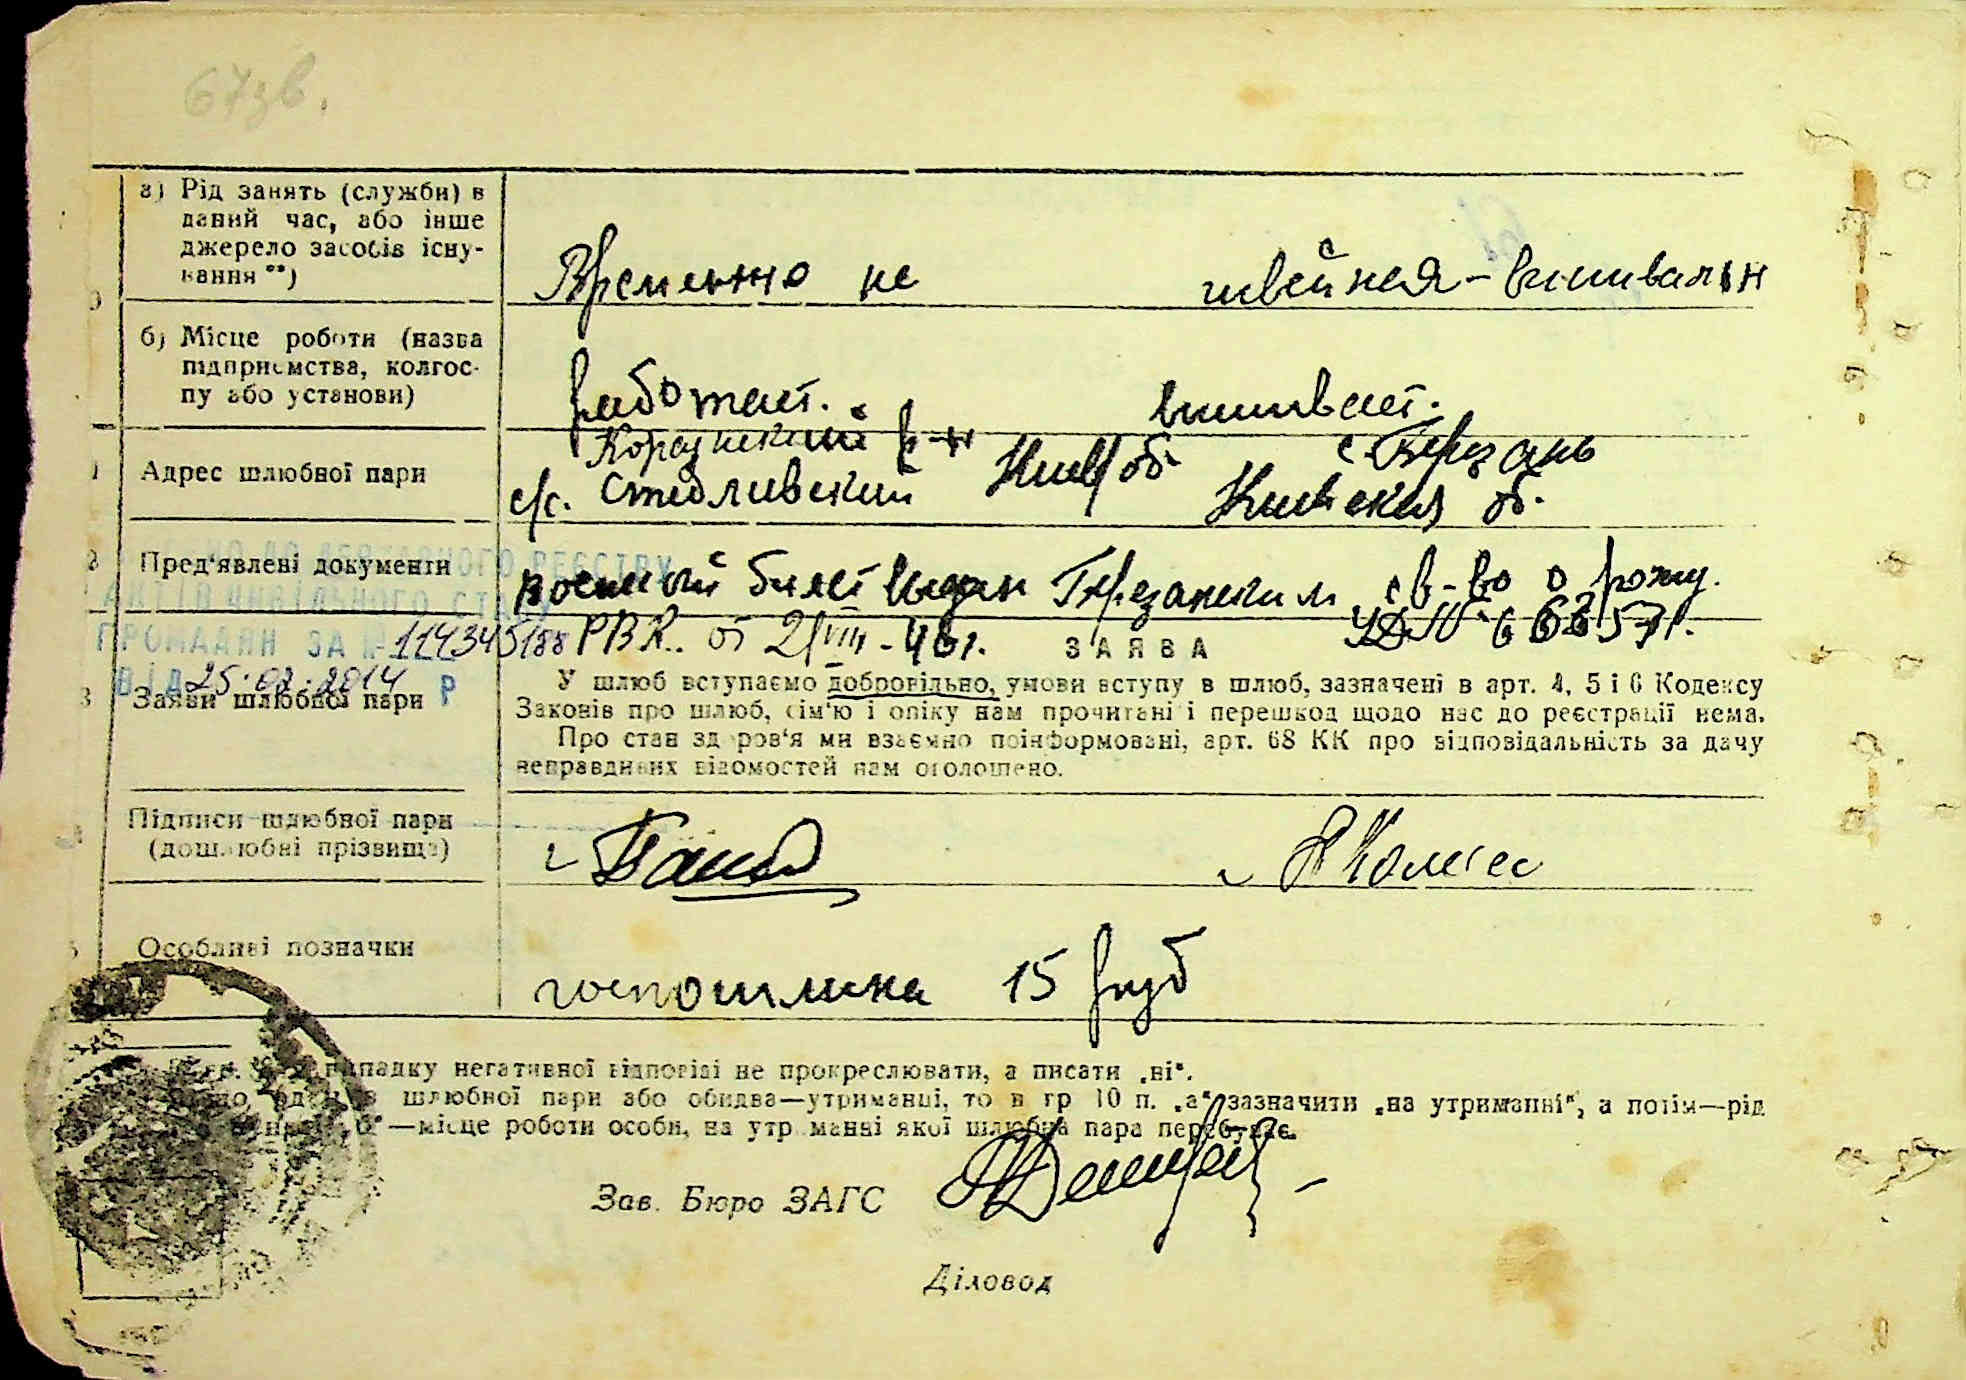 67зв.
а) Рід занять (службн) в
даний час, або інше
джерело засобів існу-
вання **)
Временно не
швейная-вишивальн
б) Місце роботи (назва
підприємства, колгос-
пу або установи)
работает.
вишивает.
Адрес шлюбної пари
р-н
Киев об.
с. Березань
с/с.
Киевская об.
Пред'явлені документи
военный билет выдан Березанским
св-во о рожд.
ДО ДЕРЖАВНОГО РЕЄСТРУ
АКТІВ ЦИВІЛЬНОГО СТАНУ
ГРОМАДЯН ЗА № 114345188
РВК. от
ВІД 25.02.2014 Р
ЗАЯВА
Заяви шлюбної пари
У шлюб вступаємо добровільно, умови вступу в шлюб, зазначені в арт. 4, 5 і 6 Кодексу
Законів про шлюб, сім'ю і опіку нам прочитані і перешкод щодо нас до реєстрації нема.
Про стан здоров'я ми взаємно поінформовані, арт. 68 КК про відповідальність за дачу
неправдивих відомостей нам оголошено.
Підписи шлюбної пари
(дошлюбні прізвища)
Особливі позначки
госпошлина 15 руб
випадку негативної відповіді не прокреслювати, а писати „ні“.
шлюбної пари або обидва—утриманці, то в гр 10 п. „а“ зазначити „на утриманні“, а потім—рід
—місце роботи особи, на утриманні якої шлюбна пара перебуває.
Зав. Бюро ЗАГС
Діловод